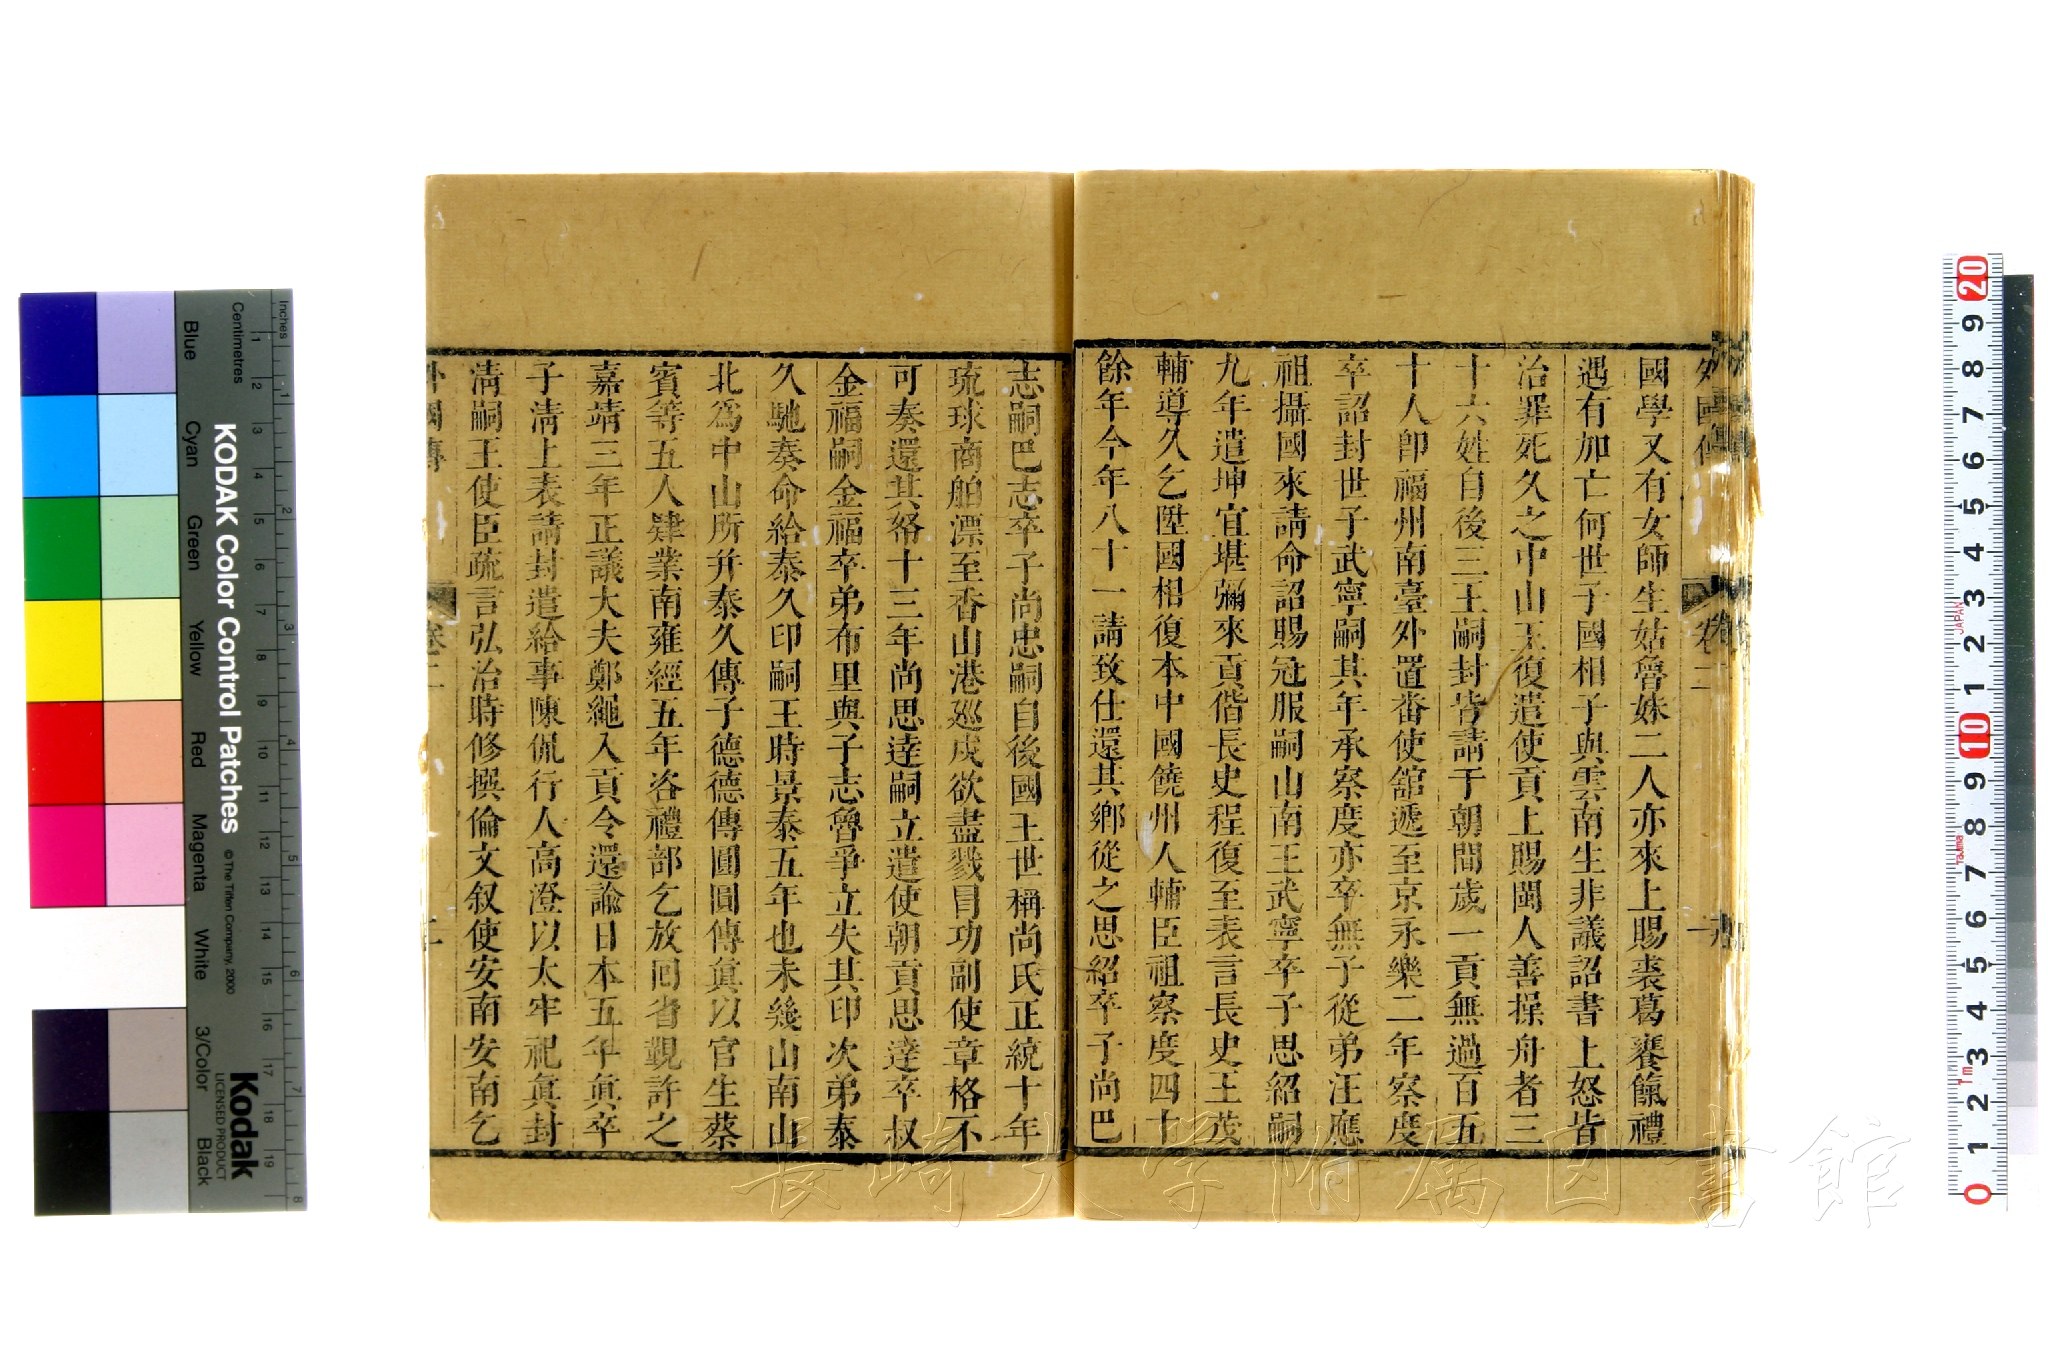 外國傳
卷二
國學又有女師生姑魯妹二人亦來上賜裘葛饔餼禮
遇有加亡何世子國相子與雲南生非議詔書上怒皆
治罪死久之中山王復遣使貢上賜閩人善操舟者三
十六姓自後三王嗣封皆請于朝間歲一貢無過百五
十人卽福州南臺外置番使舘遞至京永樂二年察度
卒詔封世子武寧嗣其年承察度亦卒無子從弟汪應
祖攝國來請命詔賜冠服嗣山南王武寧卒子思紹嗣
九年遣坤宜堪彌來貢偕長史程復至表言長史王茂
輔導久乞陞國相復本中國饒州人輔臣祖察度四十
餘年今年八十一請致仕還其鄉從之思紹卒子尚巴
志嗣巴志卒子尚忠嗣自後國王世稱尚氏正統十年
琉球商舶漂至香山港廵戍欲盡戮冒功副使章格不
可奏還其帑十三年尚思達嗣立遣使朝貢思達卒叔
金福嗣金福卒弟布里與子志魯爭立失其印次弟泰
久馳奏命給泰久印嗣王時景泰五年也未幾山南山
北為中山所幷泰久傳子德德傳圓圓傳眞以官生蔡
賓等五人肄業南雍經五年咨禮部乞放囘省覲許之
嘉靖三年正議大夫鄭繩入貢令還諭日本五年眞卒
子淸上表請封遣給事陳侃行人高澄以太牢祀眞封
淸嗣王使臣疏言弘治時修撰倫文叙使安南安南乞
外國傳
卷二
二
KODAK Color Control Patches
© The Tiffen Company, 2000
Kodak
LICENSED PRODUCT
Inches
Centimetres
Blue
Cyan
Green
Yellow
Red
Magenta
White
3/Color
Black
長崎大学附属図書館